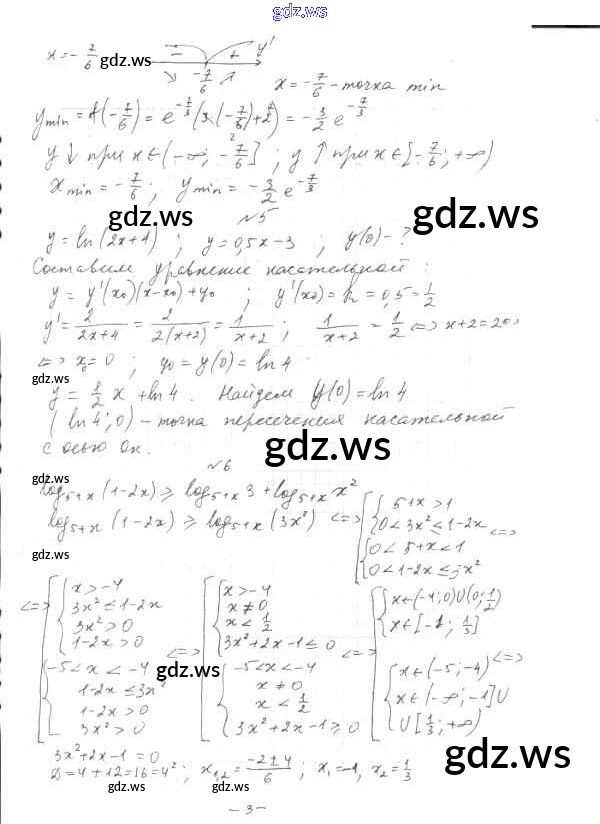 gdz.ws
x = -7/6 − + y'
-7/6 x = -7/6 - точка min
y min = f(-7/6) = e^{-7/3}(3·(-7/6)+2) = -3/2 e^{-7/3}
y ↓ при x∈(-∞; -7/6] ; y ↑ при x∈[-7/6; +∞)
x min = -7/6 ; y min = -3/2 e^{-7/3}
gdz.ws gdz.ws
№5
y = ln(2x+4) ; y = 0,5x-3 ; y(0) - ?
Составим уравнение касательной :
y = y'(x₀)(x-x₀)+y₀ ; y'(x₀) = k = 0,5 = 1/2
y' = 2/(2x+4) = 2/(2(x+2)) = 1/(x+2) ; 1/(x+2) = 1/2 <=> x+2=2 <=>
<=> x₀=0 ; y₀ = y(0) = ln 4
gdz.ws
y = 1/2 x + ln 4 . Найдем y(0) = ln 4
(ln 4; 0) - точка пересечения касательной
с осью Ox.
gdz.ws
№6
gdz.ws
log_{5+x}(1-2x) ≥ log_{5+x} 3 + log_{5+x} x²
log_{5+x}(1-2x) ≥ log_{5+x}(3x²) <=> [ { 5+x>1
0<3x²≤1-2x <=>
{ 0<5+x<1
0<1-2x≤3x²
gdz.ws
<=> [ { x>-4
3x²≤1-2x
3x²>0
1-2x>0
{ -5<x<-4
1-2x≤3x²
1-2x>0
3x²>0
<=> [ { x>-4
x≠0
x<1/2
3x²+2x-1≤0
{ -5<x<-4
x≠0
x<1/2
3x²+2x-1≥0
<=> [ { x∈(-4;0)∪(0;1/2)
x∈[-1; 1/3]
{ x∈(-5;-4) <=>
x∈(-∞;-1]∪
∪[1/3;+∞)
gdz.ws
gdz.ws
3x²+2x-1=0
D=4+12=16=4² ; x₁,₂ = (-2±4)/6 ; x₁=-1, x₂=1/3
gdz.ws gdz.ws
- 3 -